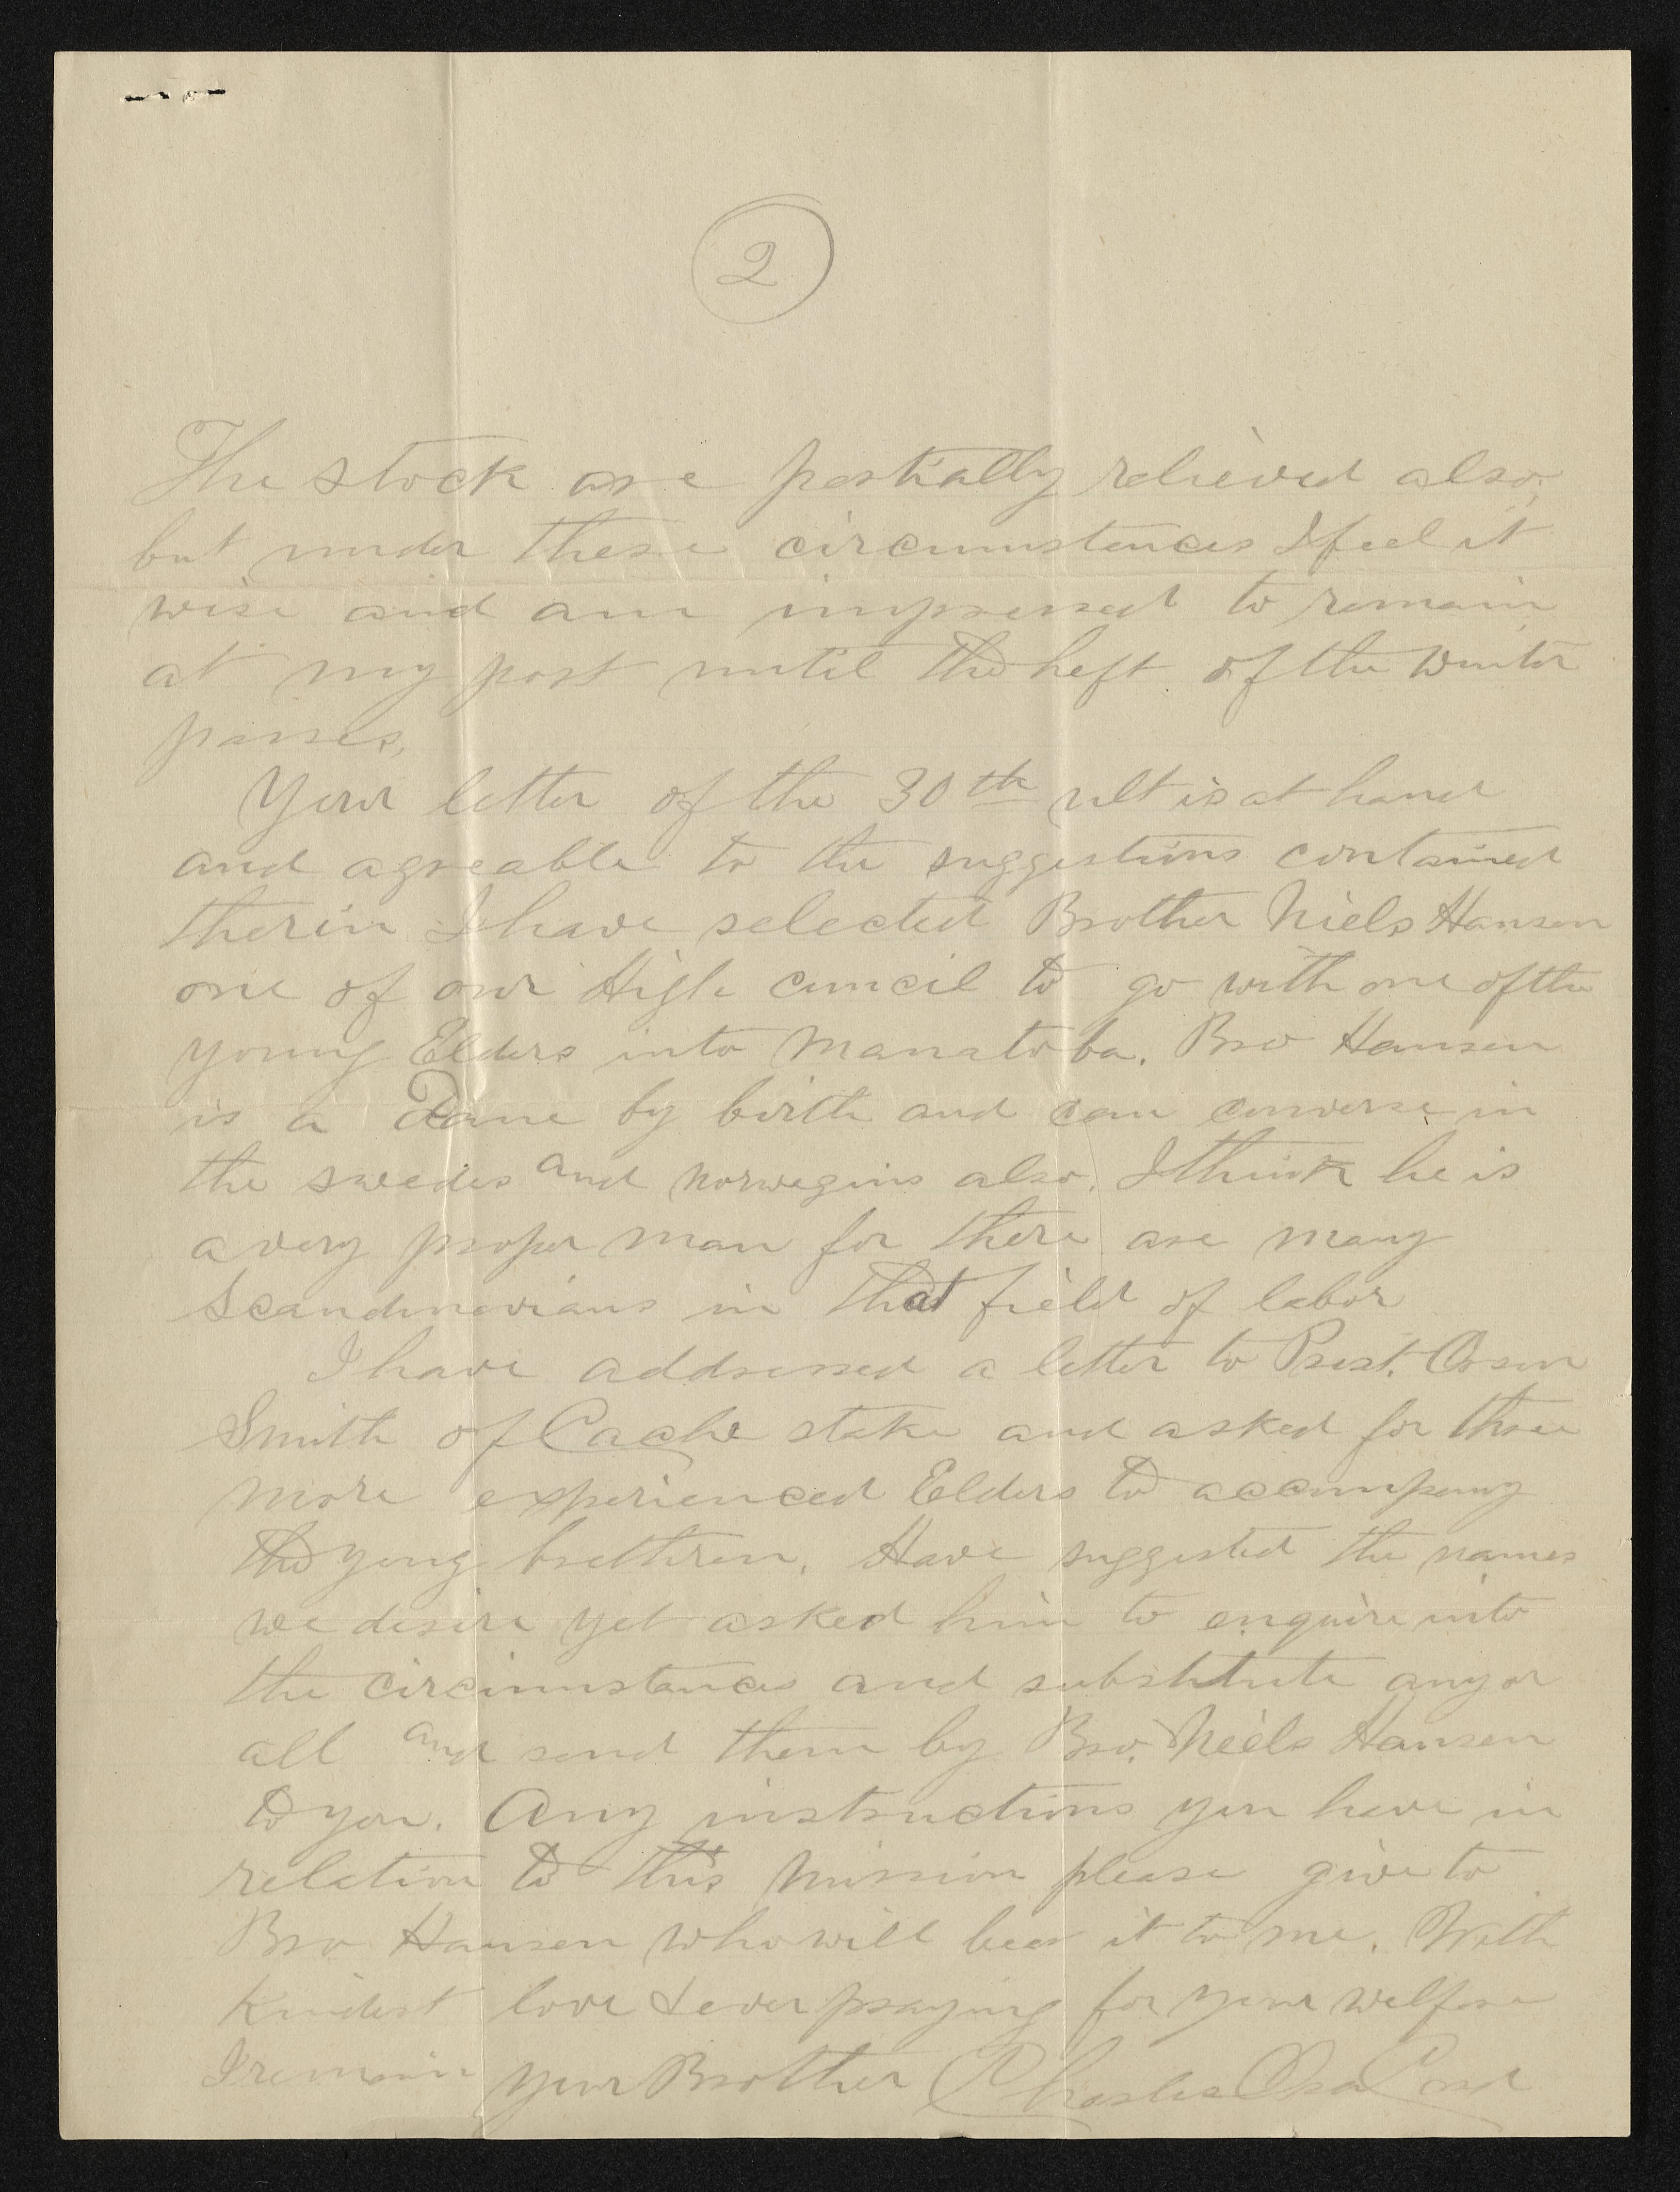 2
The stock are partially relieved also,
but under these circumstances I feel it
wise and am impressed to remain
at my post until the heft of the winter
passes,
Your letter of the 30th ult is at hand
and agreable to the suggestions contained
therin I have selected Brother Niels Hansen
one of our High Council to go with one of the
young Elders into Manatoba. Bro Hansen
is a Dane by birth and can converse in
the swedes and Norwegins also. I think he is
a very proper man for there are many
Scandinavians in that field of labor
I have addressed a letter to Prest. Orson
Smith of Cache stake and asked for three
more experienced Elders to accompany
the yong brethren. Have suggested the names
we desire yet asked him to enquire into
the circumstances and substitute any or
all and send them by Bro. Niels Hansen
to you. Any instructions you have in
relation to this Mission please give to
Bro Hansen who will bear it to me. With
Kindest love & ever praying for your welfare
I remain your Brother Charles Ora Card